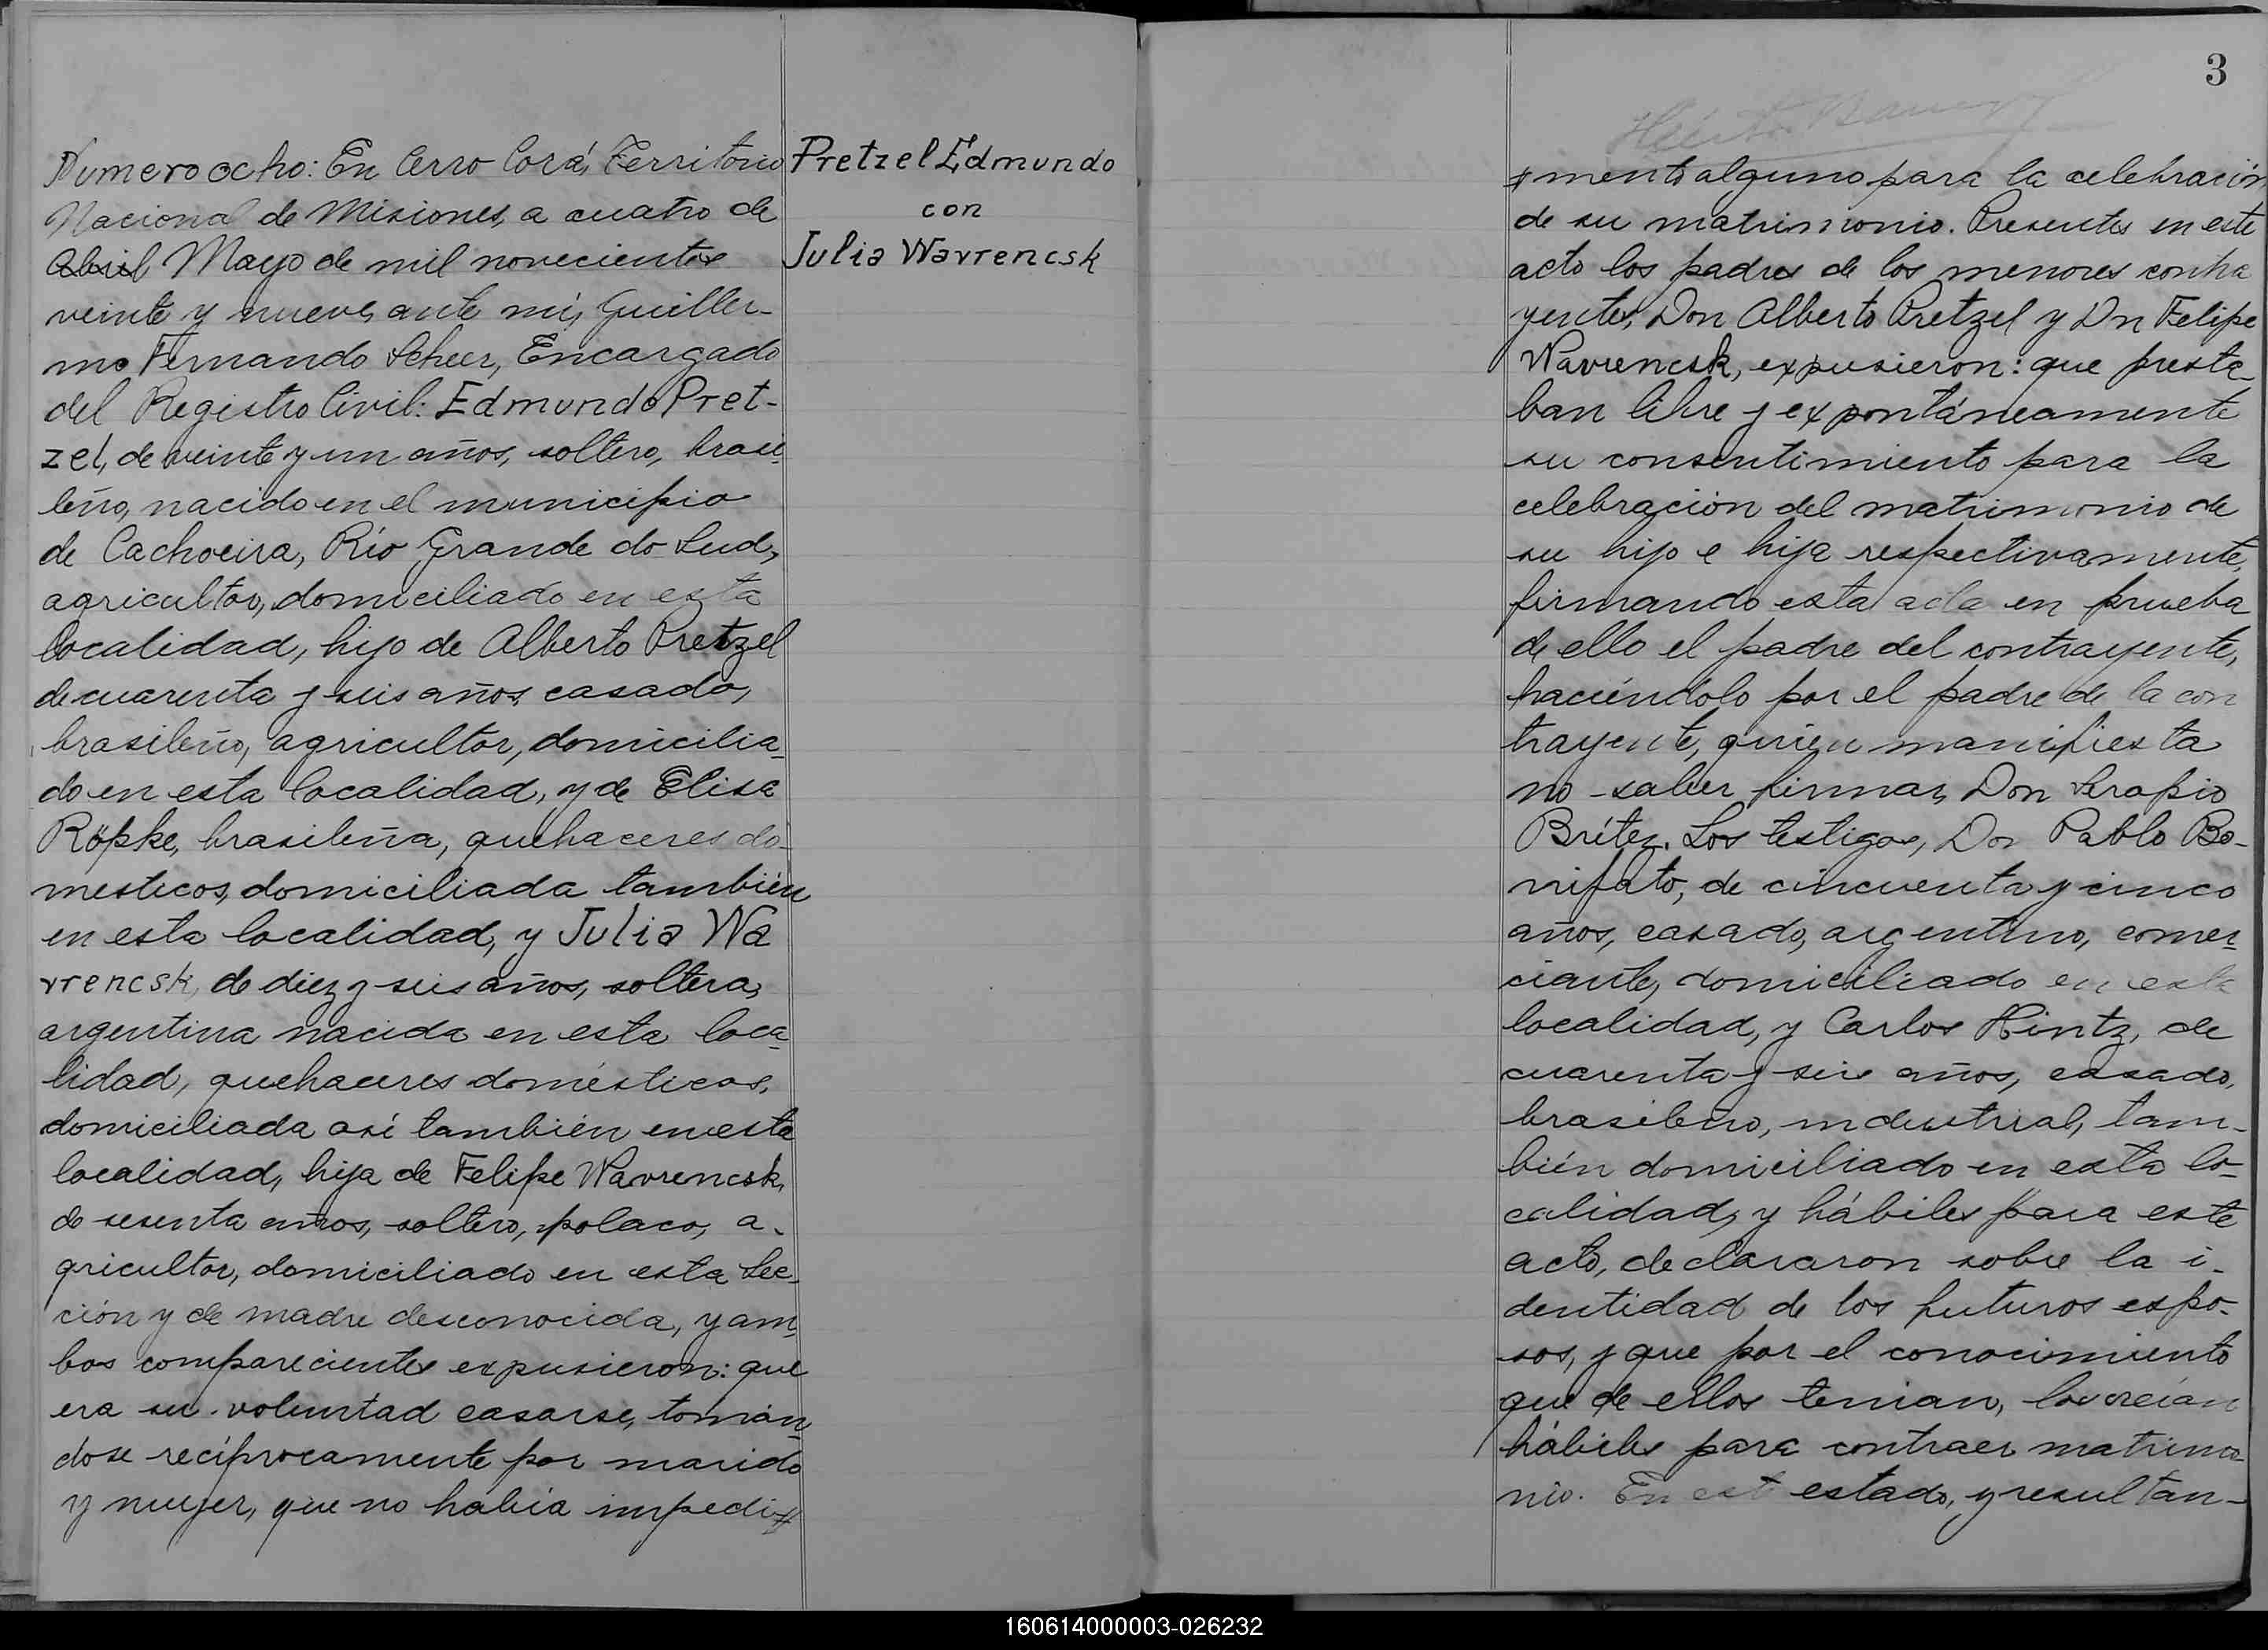 Numero ocho: En Cerro Corá, Territorio
Nacional de Misiones, a cuatro de
Abril Mayo de mil novecientos
veinte y nueve, ante mí, Guiller-
mo Fernando Scheer, Encargado
del Registro Civil: Edmundo Pret-
zel, de veinte y un años, soltero, brasi-
leño, nacido en el municipio
de Cachoeira, Río Grande do Sud,
agricultor, domiciliado en esta
localidad, hijo de Alberto Pretzel
de cuarenta y seis años, casado,
brasileño, agricultor, domicilia-
do en esta localidad, y de Elisa
Röpke, brasileña, quehaceres do-
mesticos, domiciliada también
en esta localidad, y Julia Wa
vrencsk, de diez y seis años, soltera,
argentina nacida en esta loca-
lidad, quehaceres domésticos,
domiciliada así también en esta
localidad, hija de Felipe Wavrencsk,
de sesenta años, soltero, polaco, a-
gricultor, domiciliado en esta Sec-
ción y de madre desconocida, y am-
bos comparecientes expusieron: que
era su voluntad casarse, tomán-
dose recíprocamente por marido
y mujer, que no había impedi#
Pretzel Edmundo
con
Julia Wavrencsk
3
#mento alguno para la celebración
de su matrimonio. Presentes en este
acto los padres de los menores contra
yentes, Don Alberto Pretzel y Dn Felipe
Wavrencsk, expusieron: que presta-
ban libre y expontáneamente
su consentimiento para la
celebración del matrimonio de
su hijo e hija respectivamente,
firmando esta acta en prueba
de ello el padre del contrayente,
haciéndolo por el padre de la con
trayente, quien manifiesta
no saber firmar, Don Serapio
Brítez. Los testigos, Don Pablo Bo-
nifato, de cincuenta y cinco
años, casado, argentino, comer-
ciante, domiciliado en esta
localidad, y Carlos Hintz, de
cuarenta y seis años, casado,
brasileño, industrial, tam-
bién domiciliado en esta lo-
calidad, y hábiles para este
acto, declararon sobre la i-
dentidad de los futuros espo-
sos, y que por el conocimiento
que de ellos tenian, los creían
hábiles para contraer matrimo-
nio. En est estado, y resultan-
160614000003-026232